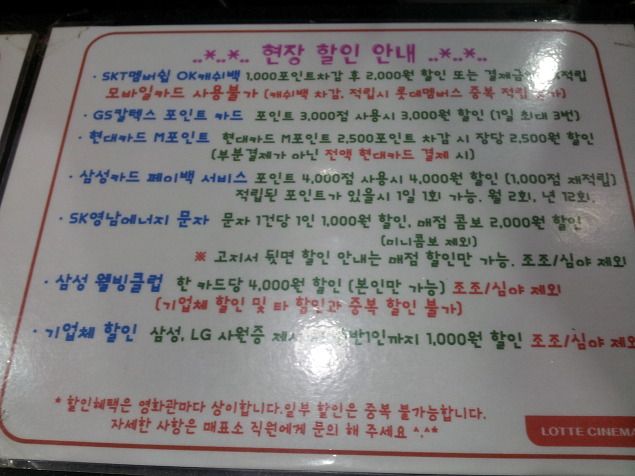 ..*..*.. 현장 할인 안내 ..*..*..
· SKT멤버쉽 OK캐쉬백 1,000포인트차감 후 2,000원 할인 또는 적립
모바일카드 사용불가 (캐쉬백 차감, 적립시 롯데멤버스 중복 적립
· GS칼텍스 포인트 카드 포인트 3,000점 사용시 3,000원 할인 (1일 최대 3번)
· 현대카드 M포인트 현대카드 M포인트 2,500포인트 차감 시 장당 2,500원 할인
(부분결제가 아닌 전액 현대카드 결제 시)
· 삼성카드 페이백 서비스 포인트 4,000점 사용시 4,000원 할인 (1,000점 재적립)
적립된 포인트가 있을시 1일 1회 가능. 월 2회, 년 12회.
· SK영남에너지 문자 문자 1건당 1인 1,000원 할인, 매점 콤보 2,000원 할인
(미니콤보 제외)
※ 고지서 뒷면 할인 안내는 매점 할인만 가능. 조조/심야 제외
· 삼성 웰빙클럽 한 카드당 4,000원 할인 (본인만 가능) 조조/심야 제외
(기업체 할인 및 타 할인과 중복 할인 불가)
· 기업체 할인 삼성, LG 사원증 1인까지 1,000원 할인 조조/심야 제외
* 할인혜택은 영화관마다 상이합니다.일부 할인은 중복 불가능합니다.
자세한 사항은 매표소 직원에게 문의 해 주세요 ^.^*
LOTTE CINEMA